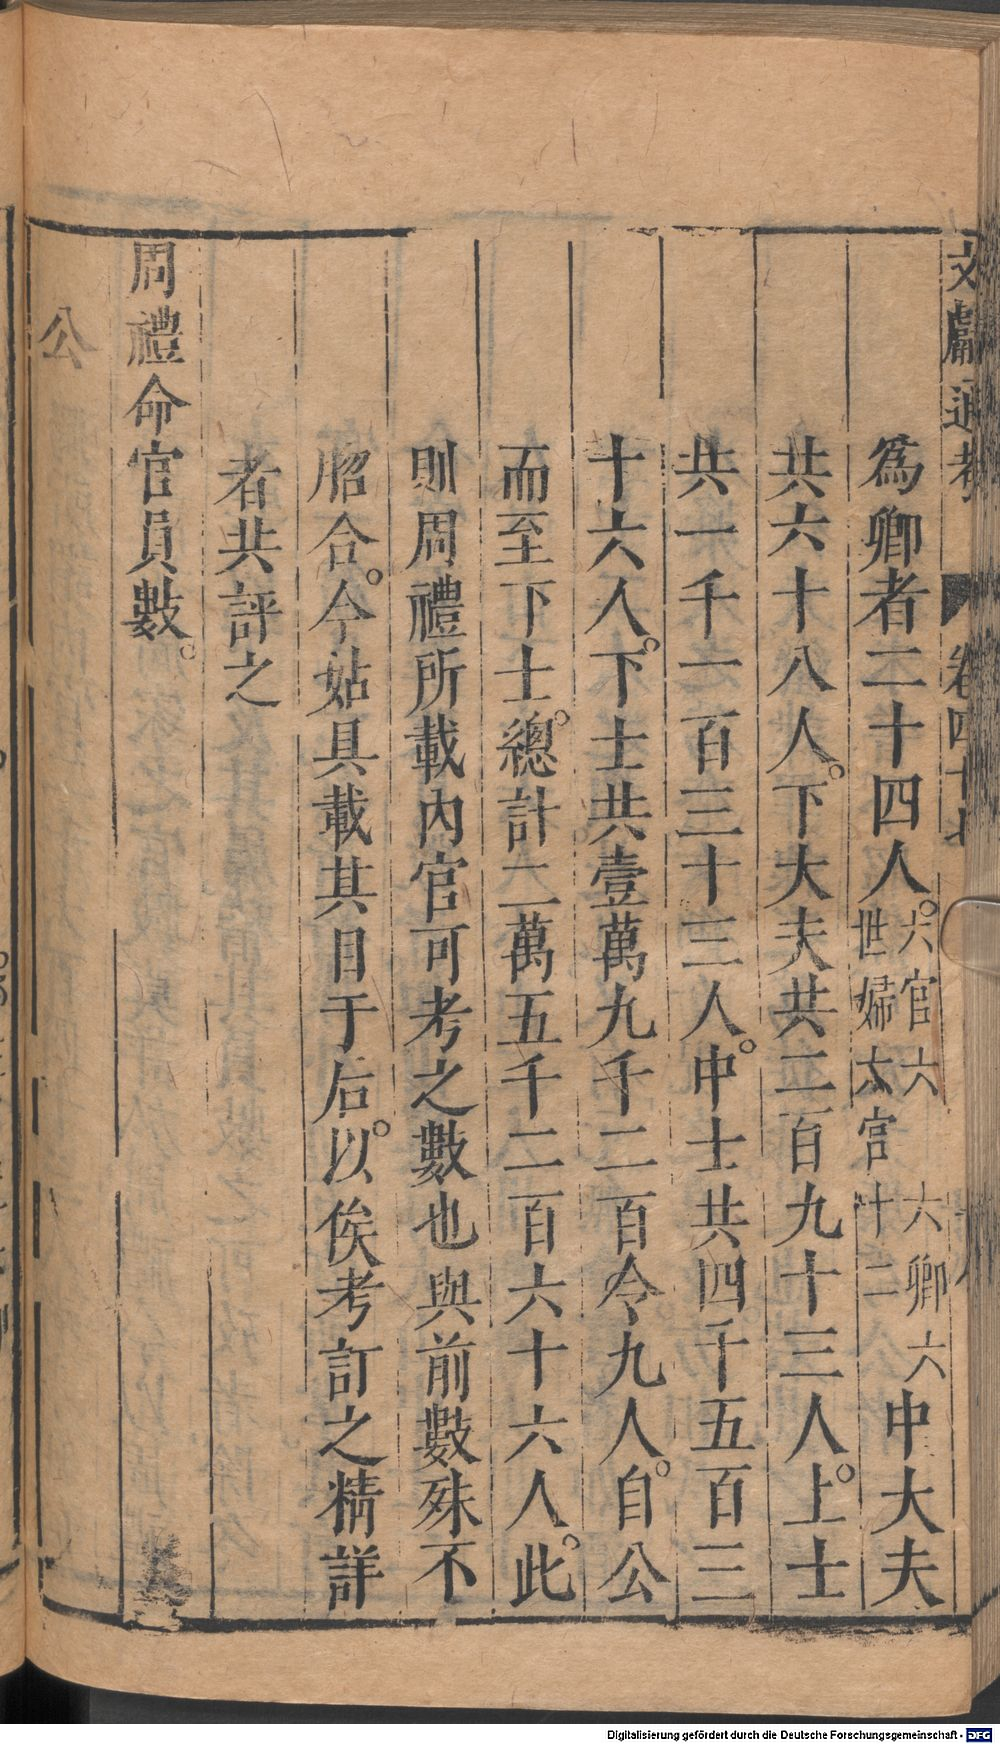 文獻通考 卷四十七
爲卿者二十四人。六官六世婦六宮十二六卿六中大夫
共六十八人。下大夫共二百九十三人。上士
共一千一百三十三人。中士共四千五百三
十六人。下士共壹萬九千二百令九人。自公
而至下士。總計二萬五千二百六十六人。此
則周禮所載內官可考之數也與前數殊不
脗合。今姑具載其目于后。以俟考訂之精詳
者共評之
周禮命官員數。
公
Digitalisierung gefördert durch die Deutsche Forschungsgemeinschaft - DFG